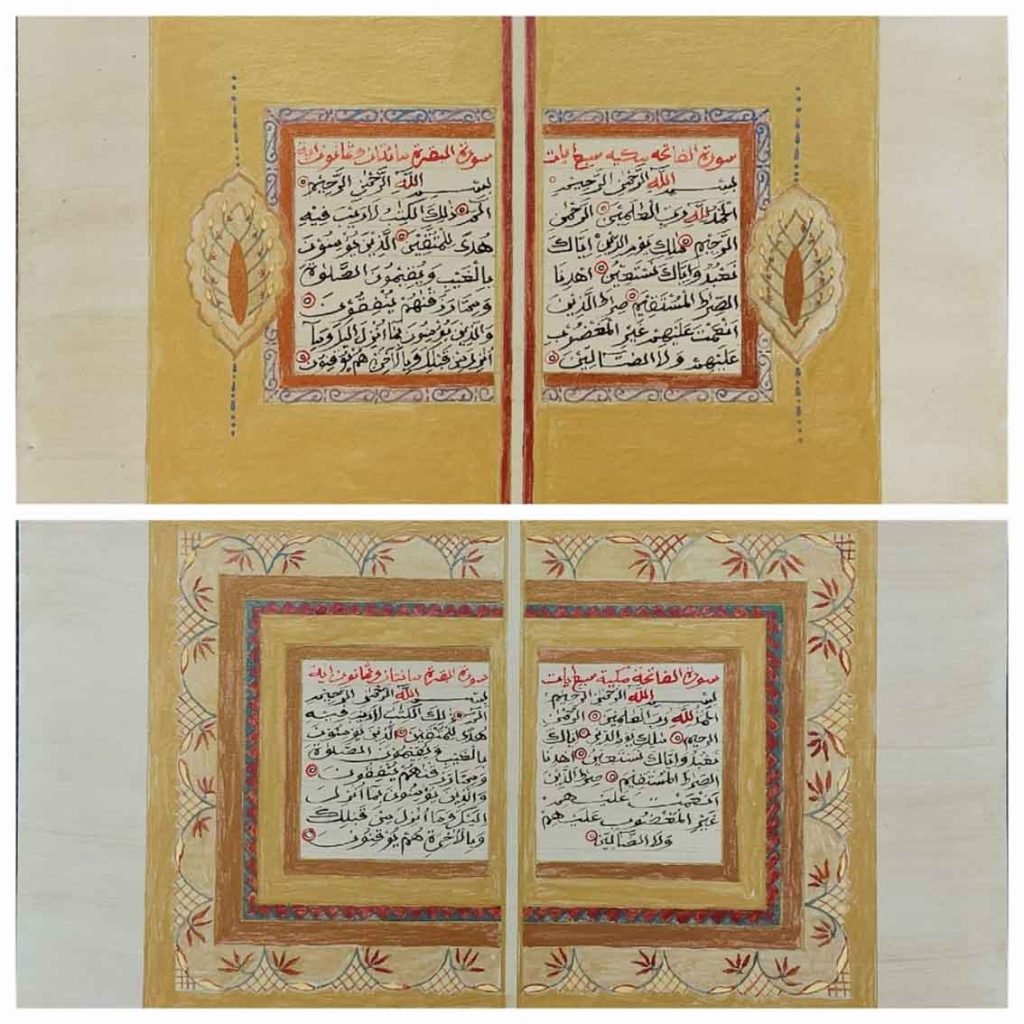 سورة الفاتحه مكيه سبع ايات
بسم الله الرَّحْمٰنِ الرَّحِيْمِ
اَلْحَمْدُ لله رَبِّ الْعٰلَمِيْنَ الرَّحْمٰنِ
الرَّحِيْمِ مٰلِكِ يَوْمِ الدِّيْنِ اِيَّاكَ
نَعْبُدُ وَاِيَّاكَ نَسْتَعِيْنُ اِهْدِنَا
الصِّرٰطَ الْمُسْتَقِيْمَ صِرٰطَ الَّذِيْنَ
اَنْعَمْتَ عَلَيْهِمْ غَيْرِ الْمَغْضُوْبِ
عَلَيْهِمْ وَلَا الضَّالِّيْنَ
سورة البقرة مائتان وثمانون اية
بسم الله الرَّحْمٰنِ الرَّحِيْمِ
الٓمّٓ ذٰلِكَ الْكِتٰبُ لَا رَيْبَ فِيْهِ
هُدًى لِلْمُتَّقِيْنَ الَّذِيْنَ يُؤْمِنُوْنَ
بِالْغَيْبِ وَيُقِيْمُوْنَ الصَّلٰوةَ
وَمِمَّا رَزَقْنٰهُمْ يُنْفِقُوْنَ
وَالَّذِيْنَ يُؤْمِنُوْنَ بِمَا اُنْزِلَ اِلَيْكَ وَمَا
اُنْزِلَ مِنْ قَبْلِكَ وَبِالْاٰخِرَةِ هُمْ يُوْقِنُوْنَ
سورة الفاتحة مكية سبع ايات
بسم الله الرَّحْمٰنِ الرَّحِيْمِ
اَلْحَمْدُ لله رَبِّ الْعٰلَمِيْنَ الرَّحْمٰنِ
الرَّحِيْمِ مٰلِكِ يَوْمِ الدِّيْنِ اِيَّاكَ
نَعْبُدُ وَاِيَّاكَ نَسْتَعِيْنُ اِهْدِنَا
الصِّرٰطَ الْمُسْتَقِيْمَ صِرٰطَ الَّذِيْنَ
اَنْعَمْتَ عَلَيْهِمْ
غَيْرِ الْمَغْضُوْبِ عَلَيْهِمْ
وَلَا الضَّالِّيْنَ
سورة البقرة مائتان وثمانون اية
بسم الله الرَّحْمٰنِ الرَّحِيْمِ
الٓمّٓ ذٰلِكَ الْكِتٰبُ لَا رَيْبَ فِيْهِ
هُدًى لِلْمُتَّقِيْنَ الَّذِيْنَ يُؤْمِنُوْنَ
بِالْغَيْبِ وَيُقِيْمُوْنَ الصَّلٰوةَ
وَمِمَّا رَزَقْنٰهُمْ يُنْفِقُوْنَ
وَالَّذِيْنَ يُؤْمِنُوْنَ بِمَا اُنْزِلَ
اِلَيْكَ وَمَا اُنْزِلَ مِنْ قَبْلِكَ
وَبِالْاٰخِرَةِ هُمْ يُوْقِنُوْنَ